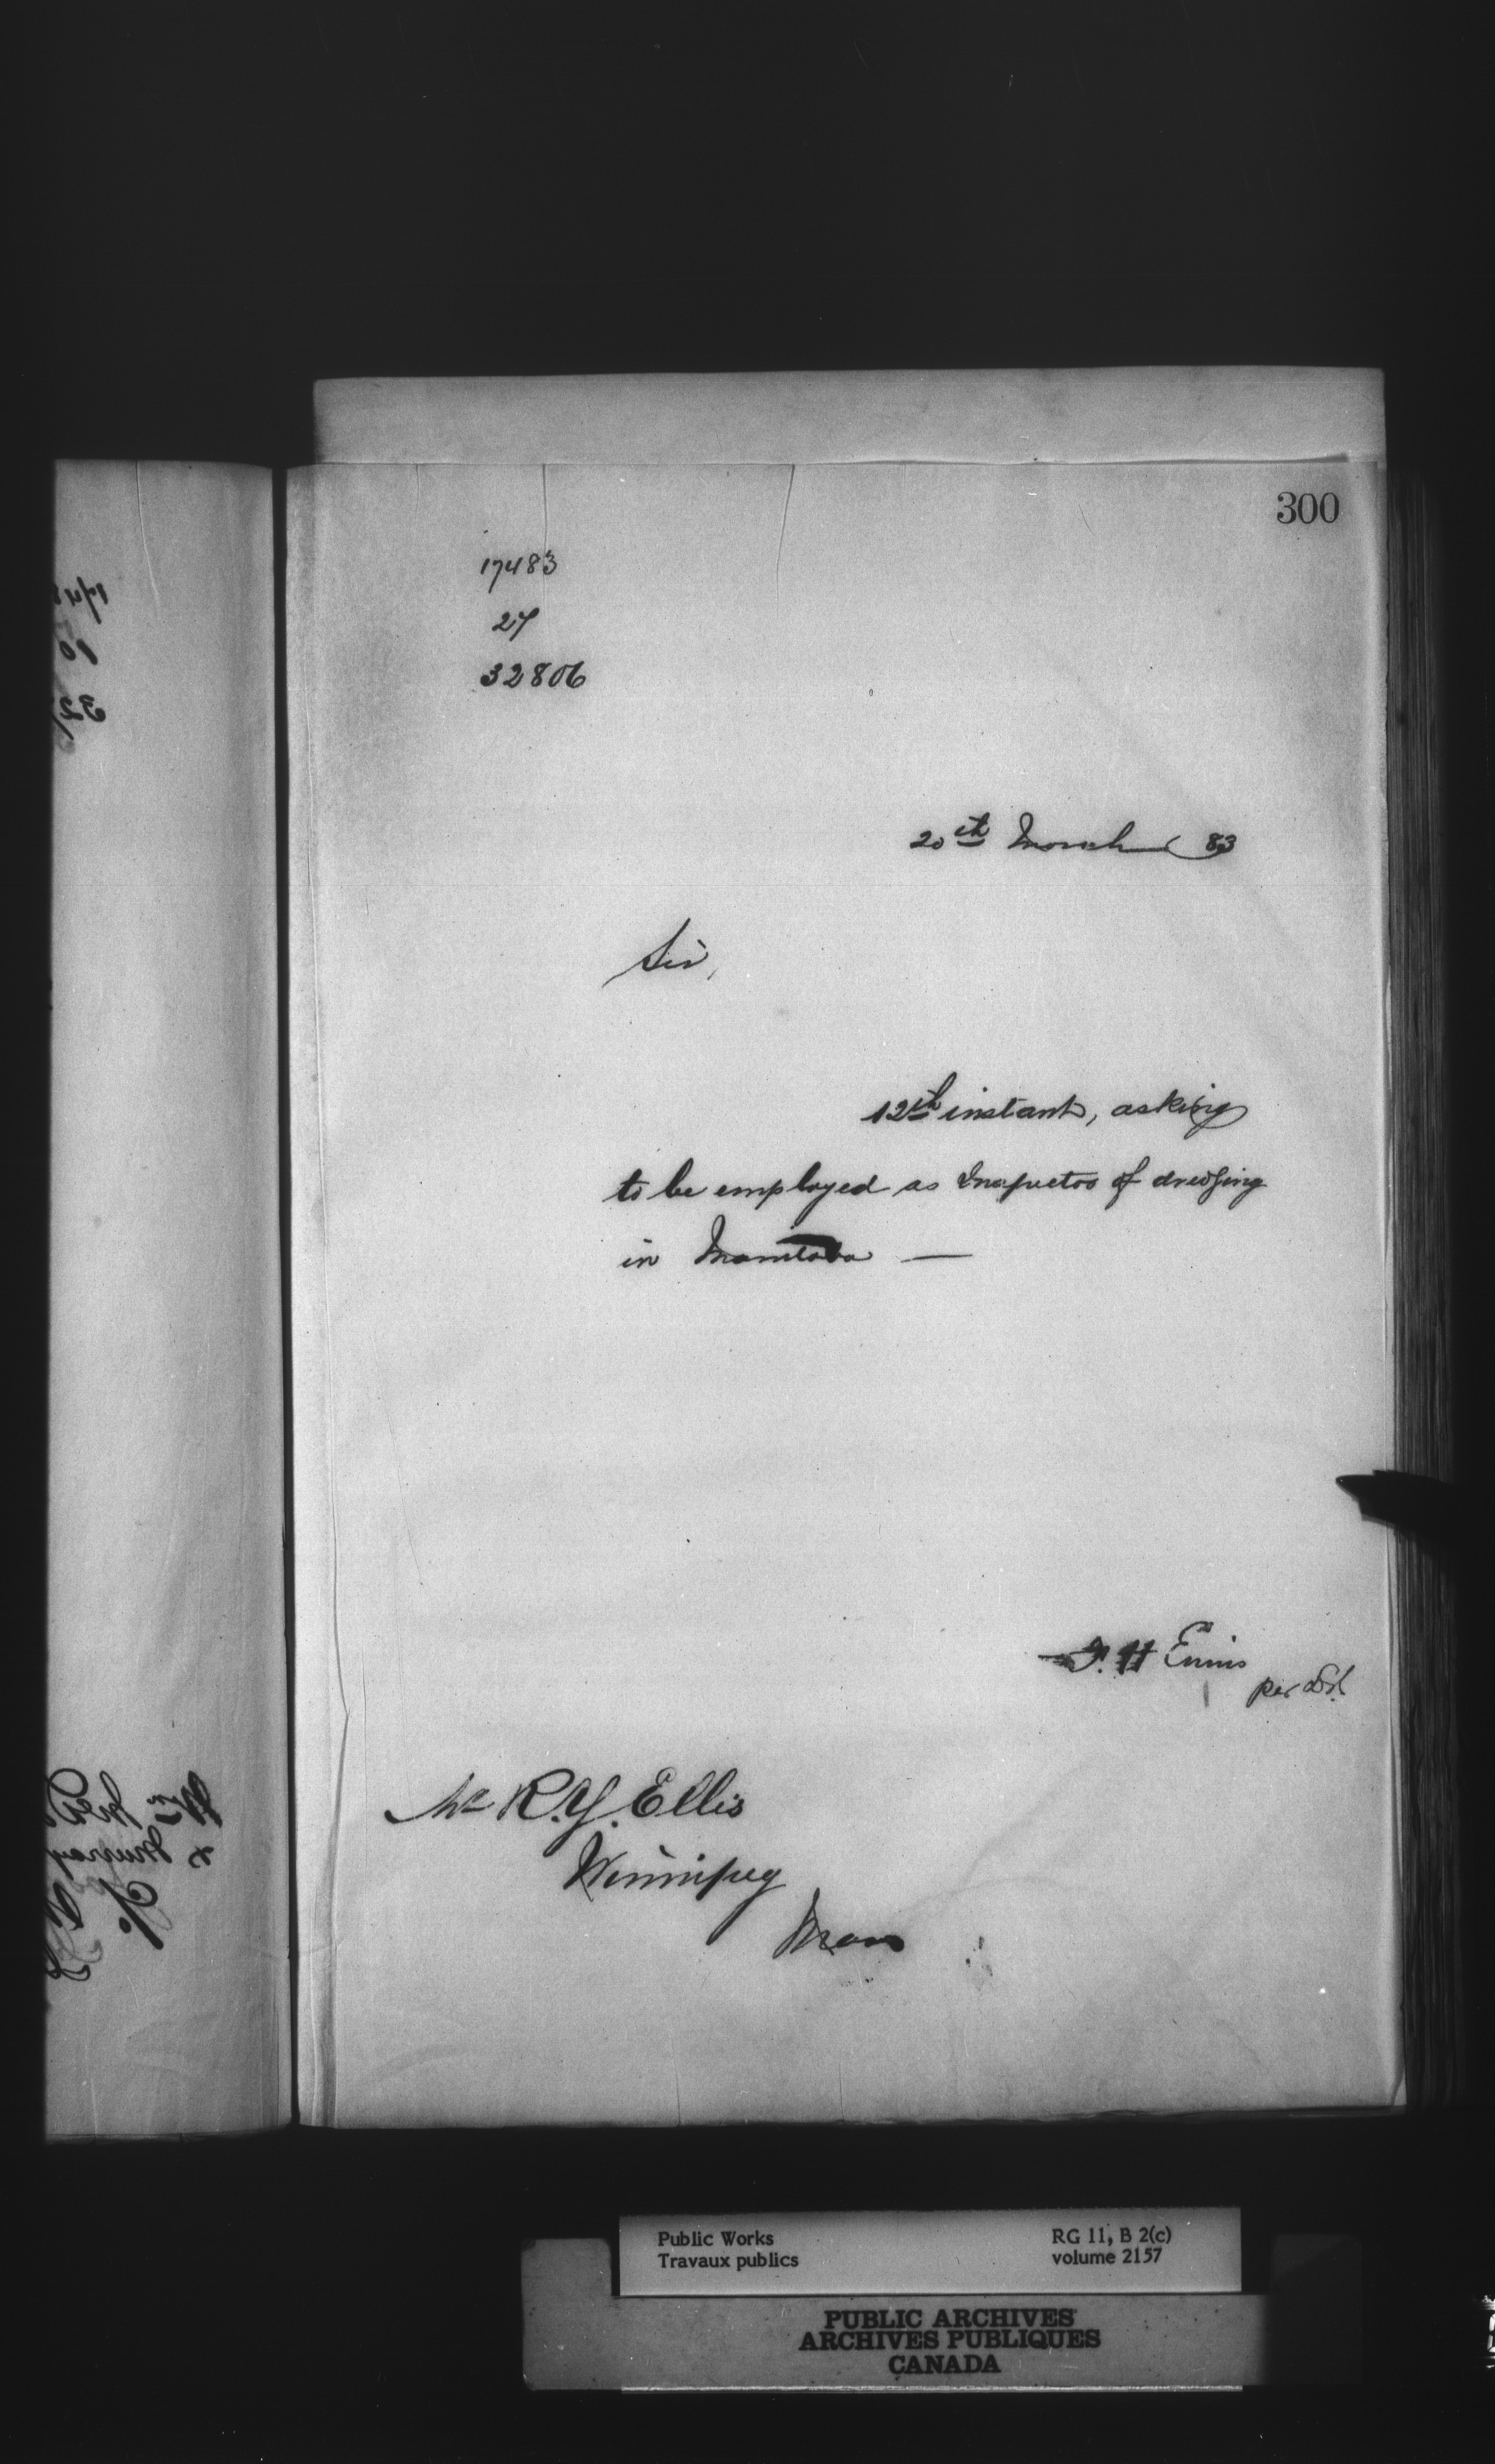 300
17483
27
32806
20th March 83
Sir,
12th instant, asking
to be employed as Inspector of dredging
in Manitoba —
F. H Ennis
per
Mr R.Y. Ellis
Winnipeg
Man
Public Works
Travaux publics
RG 11, B 2(c)
volume 2157
PUBLIC ARCHIVES
ARCHIVES PUBLIQUES
CANADA